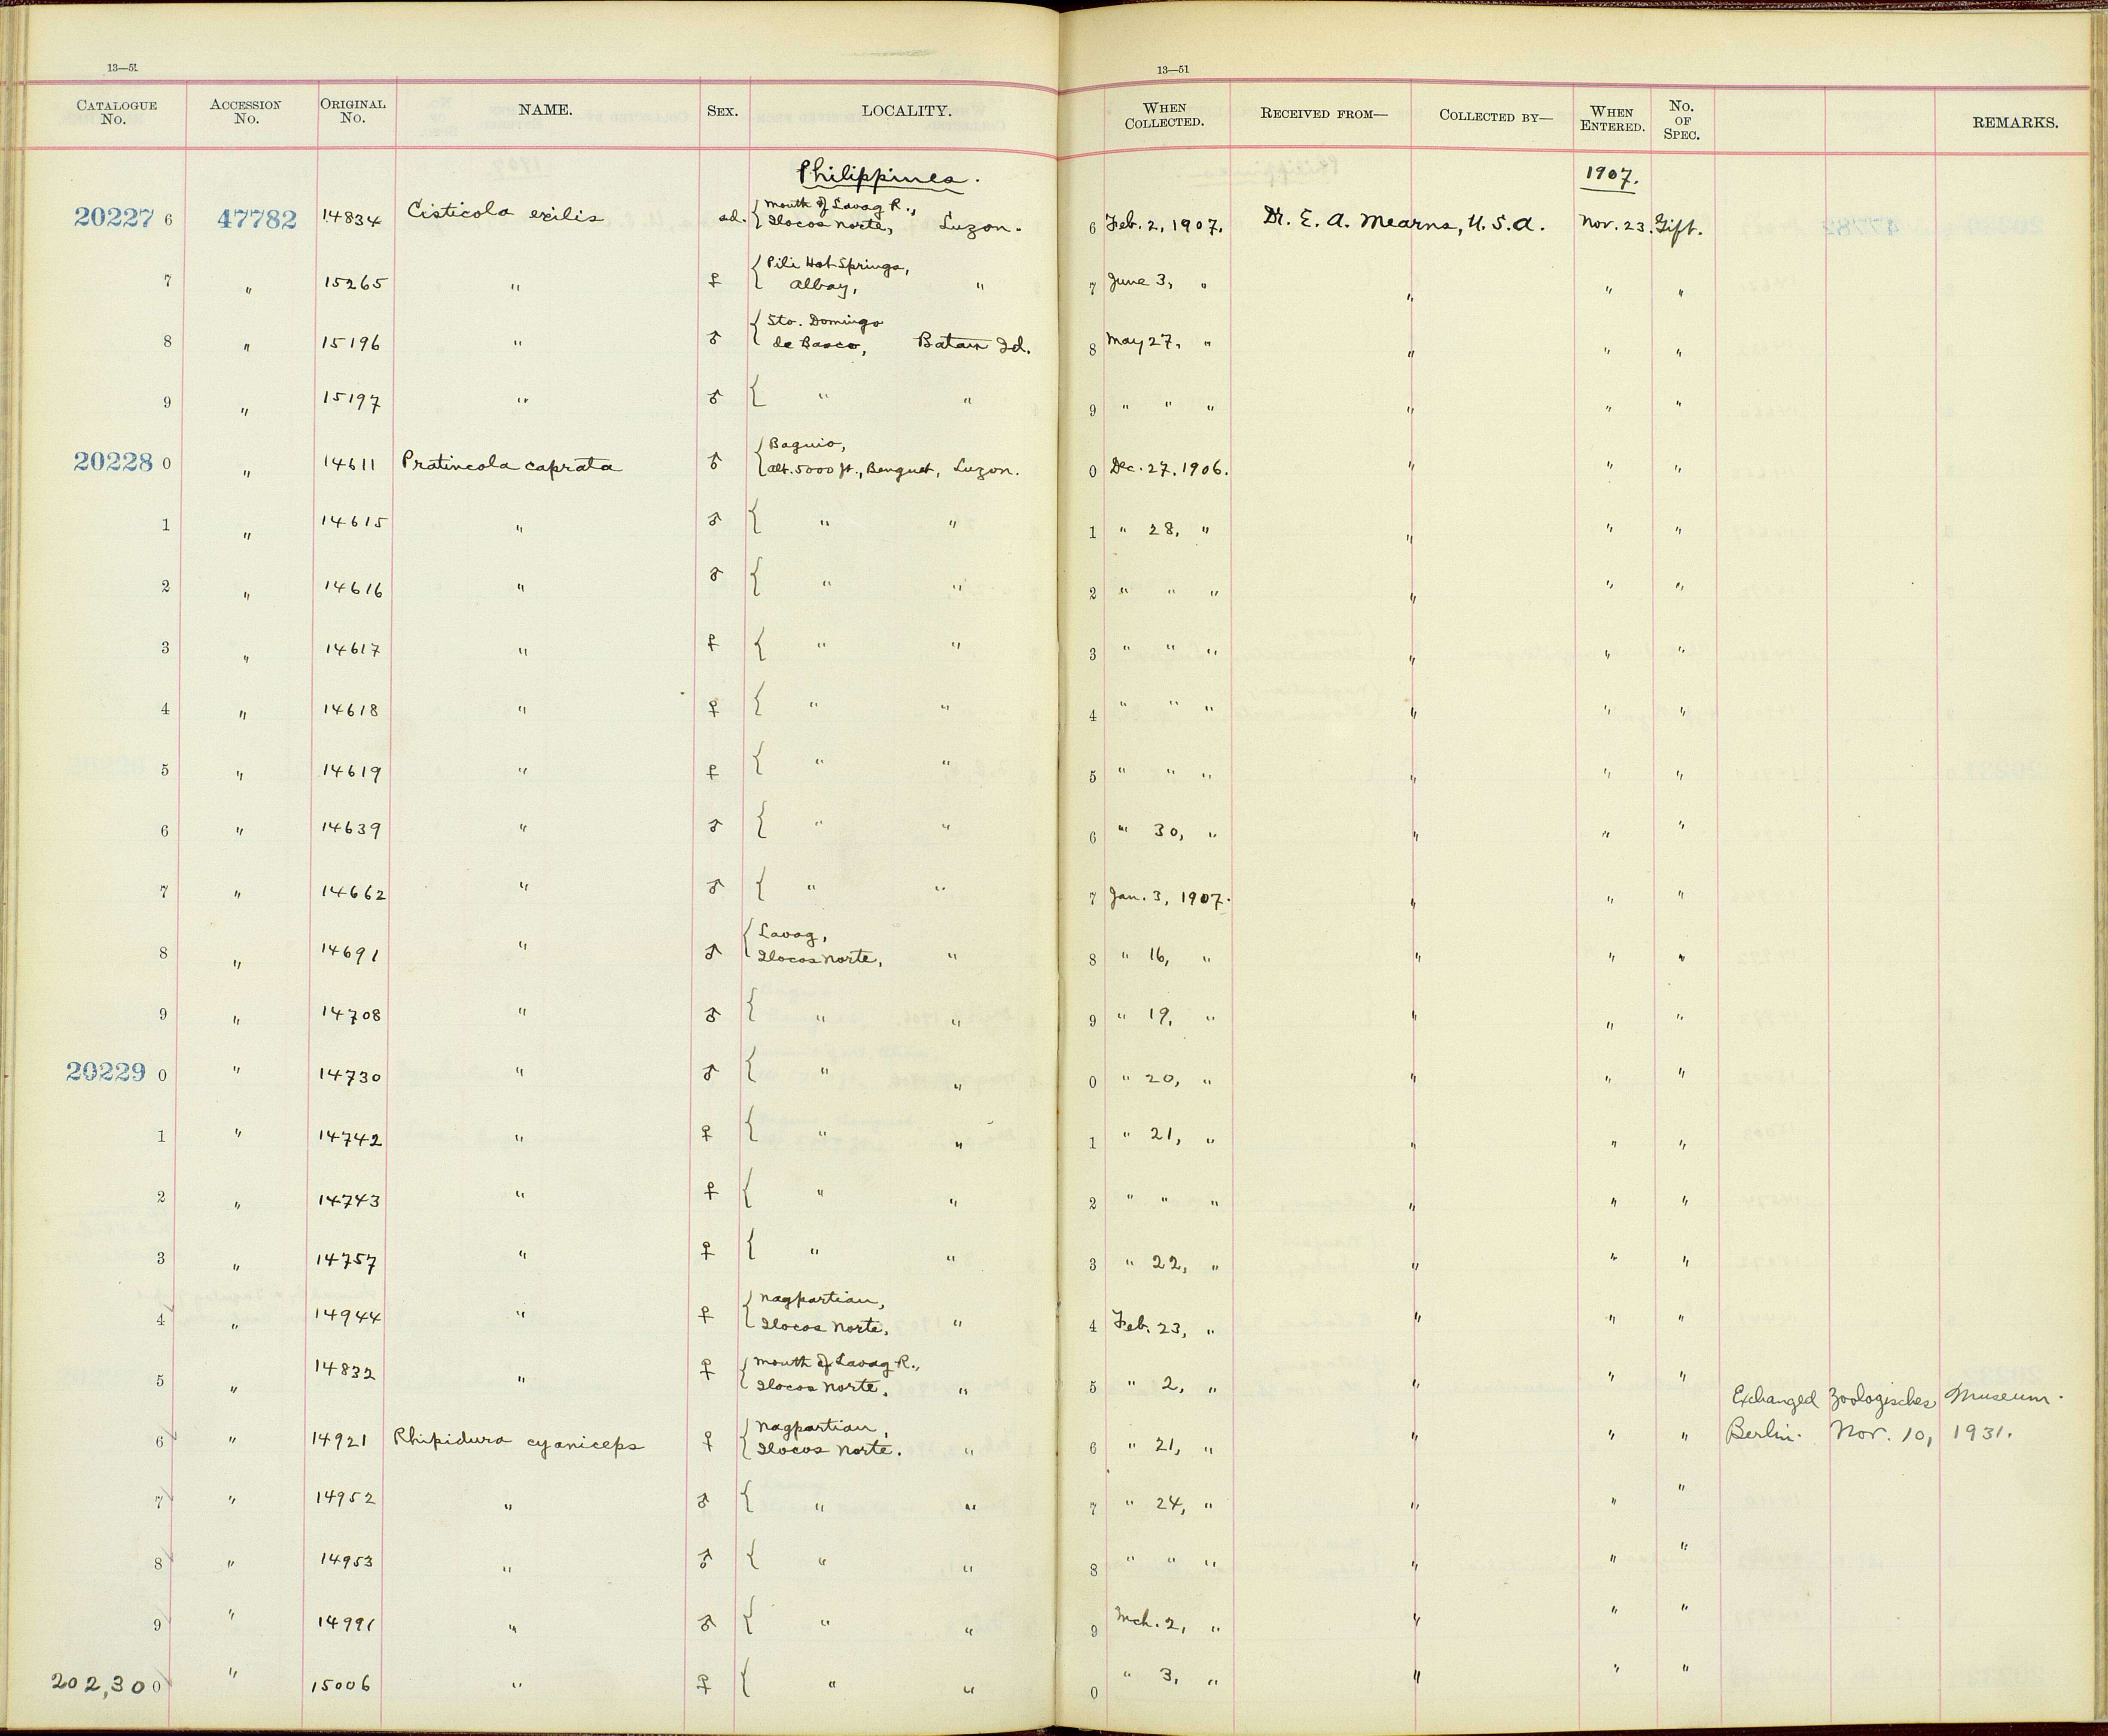 13—51
13—51
CATALOGUE No. ACCESSION No. ORIGINAL No. NAME. SEX. LOCALITY. WHEN COLLECTED. RECEIVED FROM— COLLECTED BY— WHEN ENTERED. No. OF SPEC. REMARKS.
Philippines. 1907.
20227 6 47782 14834 Cisticola exilis ad. { Mouth of Laoag R., Ilocos Norte, Luzon. 6 Feb. 2, 1907. Dr. E. A. Mearns, U.S.A. Nov. 23. Gift.
7 " 15265 " ♀ { Pili Hot Springs, Albay, " 7 June 3, " " " "
8 " 15196 " ♂ { Sto. Domingo de Basco, Batan Id. 8 May 27, " " " "
9 " 15197 " ♂ { " " 9 " " " " " "
20228 0 " 14611 Pratincola caprata ♂ { Baguio, alt. 5000 ft., Benguet, Luzon. 0 Dec. 27, 1906. " " "
1 " 14615 " ♂ { " " 1 " 28, " " " "
2 " 14616 " ♂ { " " 2 " " " " " "
3 " 14617 " ♀ { " " 3 " " " " " "
4 " 14618 " ♀ { " " 4 " " " " " "
5 " 14619 " ♀ { " " 5 " " " " " "
6 " 14639 " ♂ { " " 6 " 30, " " " "
7 " 14662 " ♂ { " " 7 Jan. 3, 1907. " " "
8 " 14691 " ♂ { Laoag, Ilocos Norte, " 8 " 16, " " " "
9 " 14708 " ♂ { " " 9 " 19, " " " "
20229 0 " 14730 " ♂ { " " 0 " 20, " " " "
1 " 14742 " ♀ { " " 1 " 21, " " " "
2 " 14743 " ♀ { " " 2 " " " " " "
3 " 14757 " ♀ { " " 3 " 22, " " " "
4 " 14944 " ♀ { Nagpartian, Ilocos Norte, " 4 Feb. 23, " " " "
5 " 14832 " ♀ { Mouth of Laoag R., Ilocos Norte. " 5 " 2, " " " "
Exchanged Zoologisches Museum.
6 " 14921 Rhipidura cyaniceps ♀ { Nagpartian, Ilocos Norte. " 6 " 21, " " " " Berlin. Nov. 10, 1931.
7 " 14952 " ♂ { " " 7 " 24, " " " "
8 " 14953 " ♂ { " " 8 " " " " " "
9 " 14991 " ♂ { " " 9 Mch. 2, " " " "
202,300 " 15006 " ♀ { " " 0 " 3, " " " "